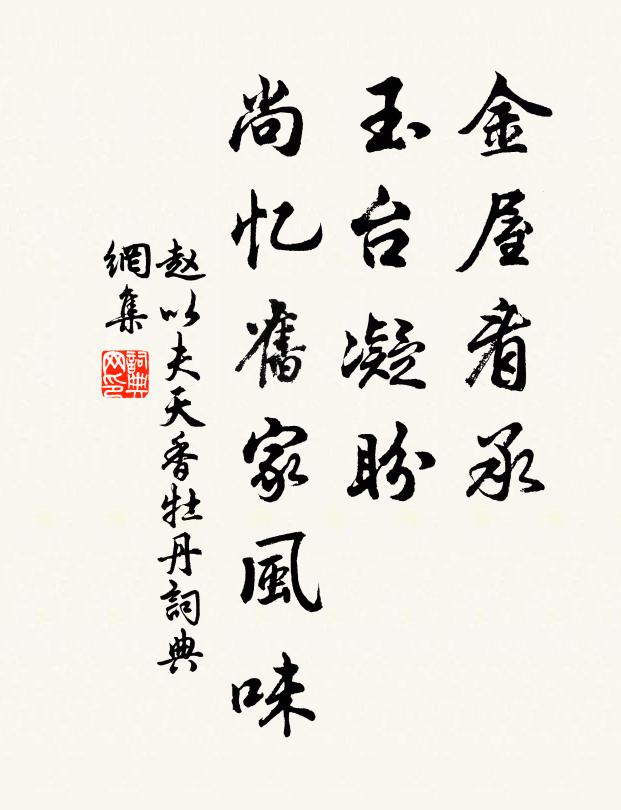 金屋看承
玉台凝盼
尚忆舊家風味
赵以夫天香牡丹詞典
網集
詞典网印